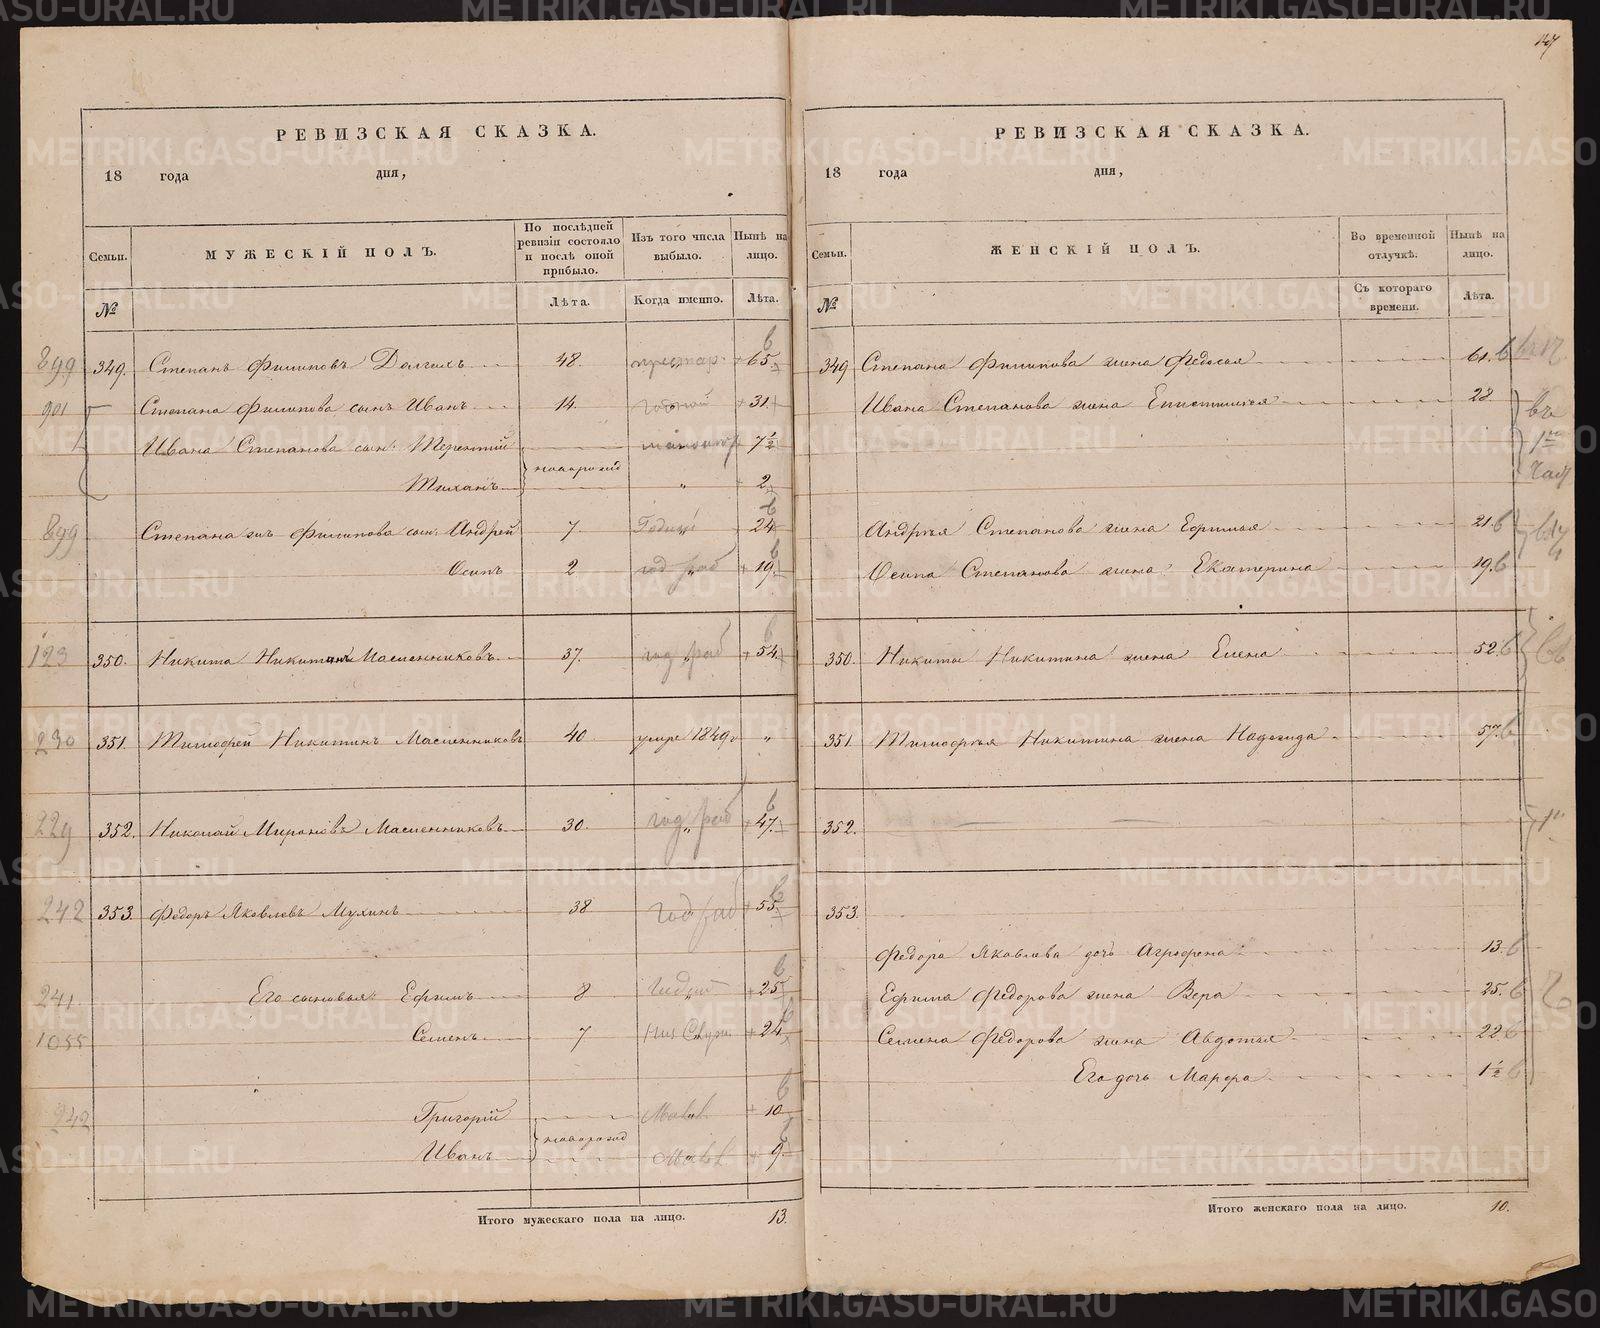 РЕВИЗСКАЯ СКАЗКА.
18 года дня,
Семьи.
МУЖЕСКІЙ ПОЛЪ.
По послѣдней ревизіи состояло и послѣ оной прибыло.
Изъ того числа выбыло.
Нынѣ на лицо.
№
Лѣта.
Когда именно.
Лѣта.
899 349. Степанъ Филиповъ Долгихъ 48. 65
901 Степана Филипова сынъ Иванъ 14. 31
Ивана Степанова сын: Терентій 7½
новорожд
Тиханъ „ 2
899 Степана жъ Филипова сын: Андрей 7. 24
Осипъ 2 год раб 19.
123 350. Никита Никитинъ Масленниковъ 37. год раб 54
230 351. Тимофей Никитинъ Масленниковъ 40 умре 1849 „
229 352. Николай Мироновъ Масленниковъ 30. год раб 47.
242 353. Федоръ Яковлевъ Мухинъ 38 год раб 55
241 Его сыновья: Ефимъ 8 25
1055 Семенъ 7 24
242 Григорій Малол 10
новорожд
Иванъ Малол 9
Итого мужескаго пола на лицо. 13.
147
РЕВИЗСКАЯ СКАЗКА.
18 года дня,
Семьи.
ЖЕНСКІЙ ПОЛЪ.
Во временной отлучкѣ.
Нынѣ на лицо.
№
Съ котораго времени.
Лѣта.
349 Степана Филипова жена Федосья 61.
Ивана Степанова жена 28
Андрѣя Степанова жена Ефимья 21.
Осипа Степанова жена Екатерина 19.
350. Никиты Никитина жена Елена 52
351. Тимофѣя Никитина жена Надежда 57.
352.
353.
Федора Яковлева дочь Агрофена 13.
Ефима Федорова жена Вера 25.
Семена Федорова жена Авдотья 22
Его дочь Марфа 1½
Итого женскаго пола на лицо. 10.
METRIKI.GASO-URAL.RU